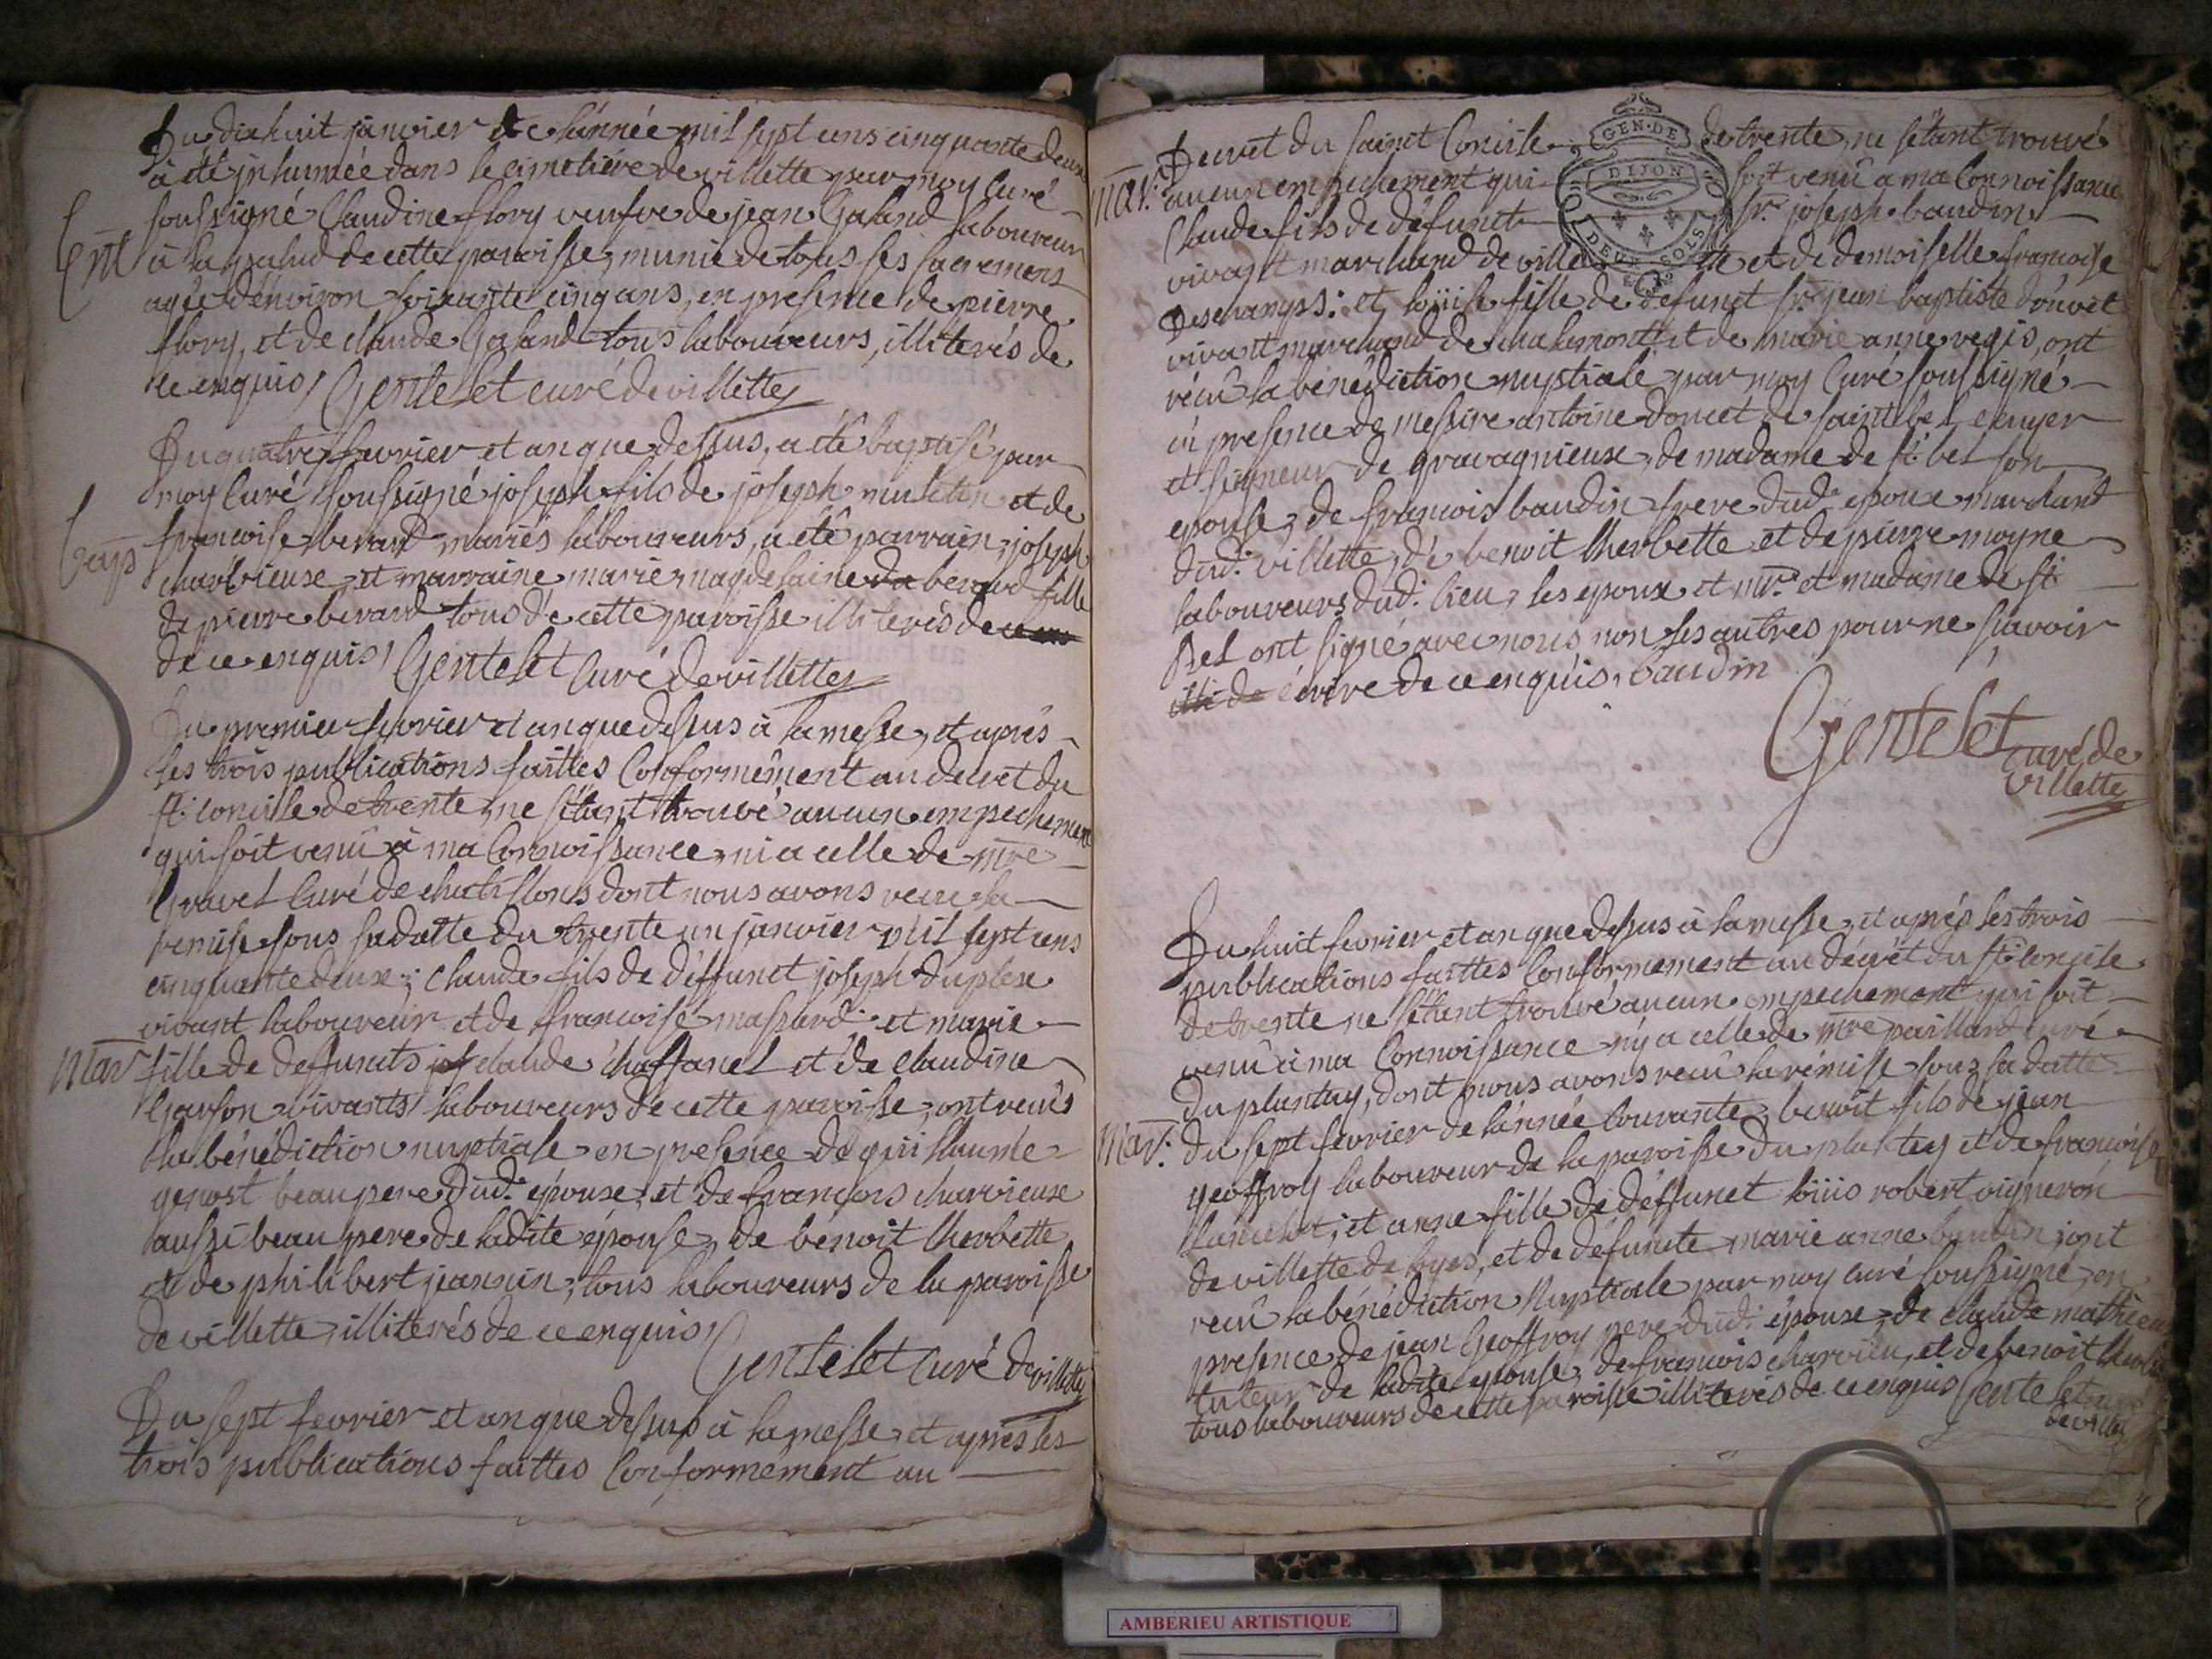 Du dixhuit janvier de l'année mil sept cens cinquante deux
à été inhumée dans le cimetière de villette par moy Curé
soussigné Claudine flory veufve de jean Galand laboureur
Ent
à la palud de cette paroisse, munie de tous ses sacremens
agée d'environ soixante cinq ans, en presence de pierre
flory, et de claude Galand tous laboureurs, illiterés de
ce enquis Gentelet curé de villette
Du quatre fevrier et an que dessus, a été baptisé par
moy Curé soussigné joseph fils de joseph et de
Bap
francoise berard mariés laboureurs, a été parrain joseph
charvieuse et marraine marie magdelaine berard fille
de pierre berard tous de cette paroisse illiterés
de ce enquis Gentelet Curé de villette
Du premier fevrier et an que dessus à la messe, et aprés
les trois publications faittes Conformément au decret du
st. concile de trente, ne s'étant trouvé aucun empechement
qui soit venû à ma Connoissance, ni a celle de mre
Gravet Curé de chatillon dont nous avons receu la
remise sous sa datte du trente un janvier mil sept cens
cinquante deux; claude fils de déffunct joseph duplex
vivant laboureur et de francoise massard et marie
Mar
fille de deffuncts claude chaffanel et de claudine
Garson vivants laboureurs de cette paroisse, ont receûs
la bénédiction nuptiale en presence de guillaume
genost beaupere dud. époux, et de francois charvieuse
aussi beaupere de ladite épouse, de bénoit lherbette
et de philibert jeannin, tous laboureurs de la paroisse
de villette, illiterés de ce enquis Gentelet Curé de villette
Du sept fevrier et an que dessus à la messe, et aprés les
trois publications faittes Conformement au
Decret du saint Concile de trente, ne s'étant trouvé
Mar.
aucun empechement qui soit venû a ma Connoissance
GEN. DE
DIJON
DEUX SOLS
Claude fils de défunct sr. joseph baudin
vivant marchand de villette et de demoiselle francoise
Deschamps: et loüise fille de defunct sr. jean baptiste
vivant marchand de chalamont et de marie anne regis, ont
réçû la bénédiction nuptiale par moy Curé soussigné
en presence de messire antoine doncet de saintbel ecuyer
et seigneur de gravagnieux, de madame de st. bel son
epouse, de francois baudin frere dud. epoux marchand
dud. villette, de benoit lherbette et de pierre moyne
laboureurs dud. lieu, les epoux et mr. et madame de st.
Bel ont signé avec nous non les autres pour ne sçavoir
écrire de ce enquis. baudin
Gentelet curé de
villette
Du huit fevrier et an que dessus à la messe, et aprés les trois
publications faittes Conformement au décrét du st. concile
de trente ne s'étant trouvé aucun empechement qui soit
venû à ma Connoissance ny a celle de mre paillard curé
du plantay, dont nous avons reçû la rémise sous sa datte
Mar.
du sept fevrier de l'année Courante; benoit fils de jean
geoffroy laboureur de la paroisse du plantey et de francoise
; et anne fille de déffunct loüis robert vigneron
de villette de loyes, et de défuncte marie anne baudin; ont
reçû la bénédiction Nuptiale par moy curé soussigné, en
presence de jean Geoffroy pere dud. époux, de claude mathieu
tuteur de ladite epouse, de francois charvieu, et de benoit
tous laboureurs de cette paroisse illiterés de ce enquis Gentelet curé
de villette
AMBERIEU ARTISTIQUE